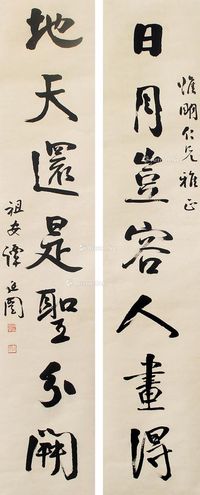 惟明仁兄雅正
日月豈容人畫得
地天還是聖分闢
祖安譚延闓